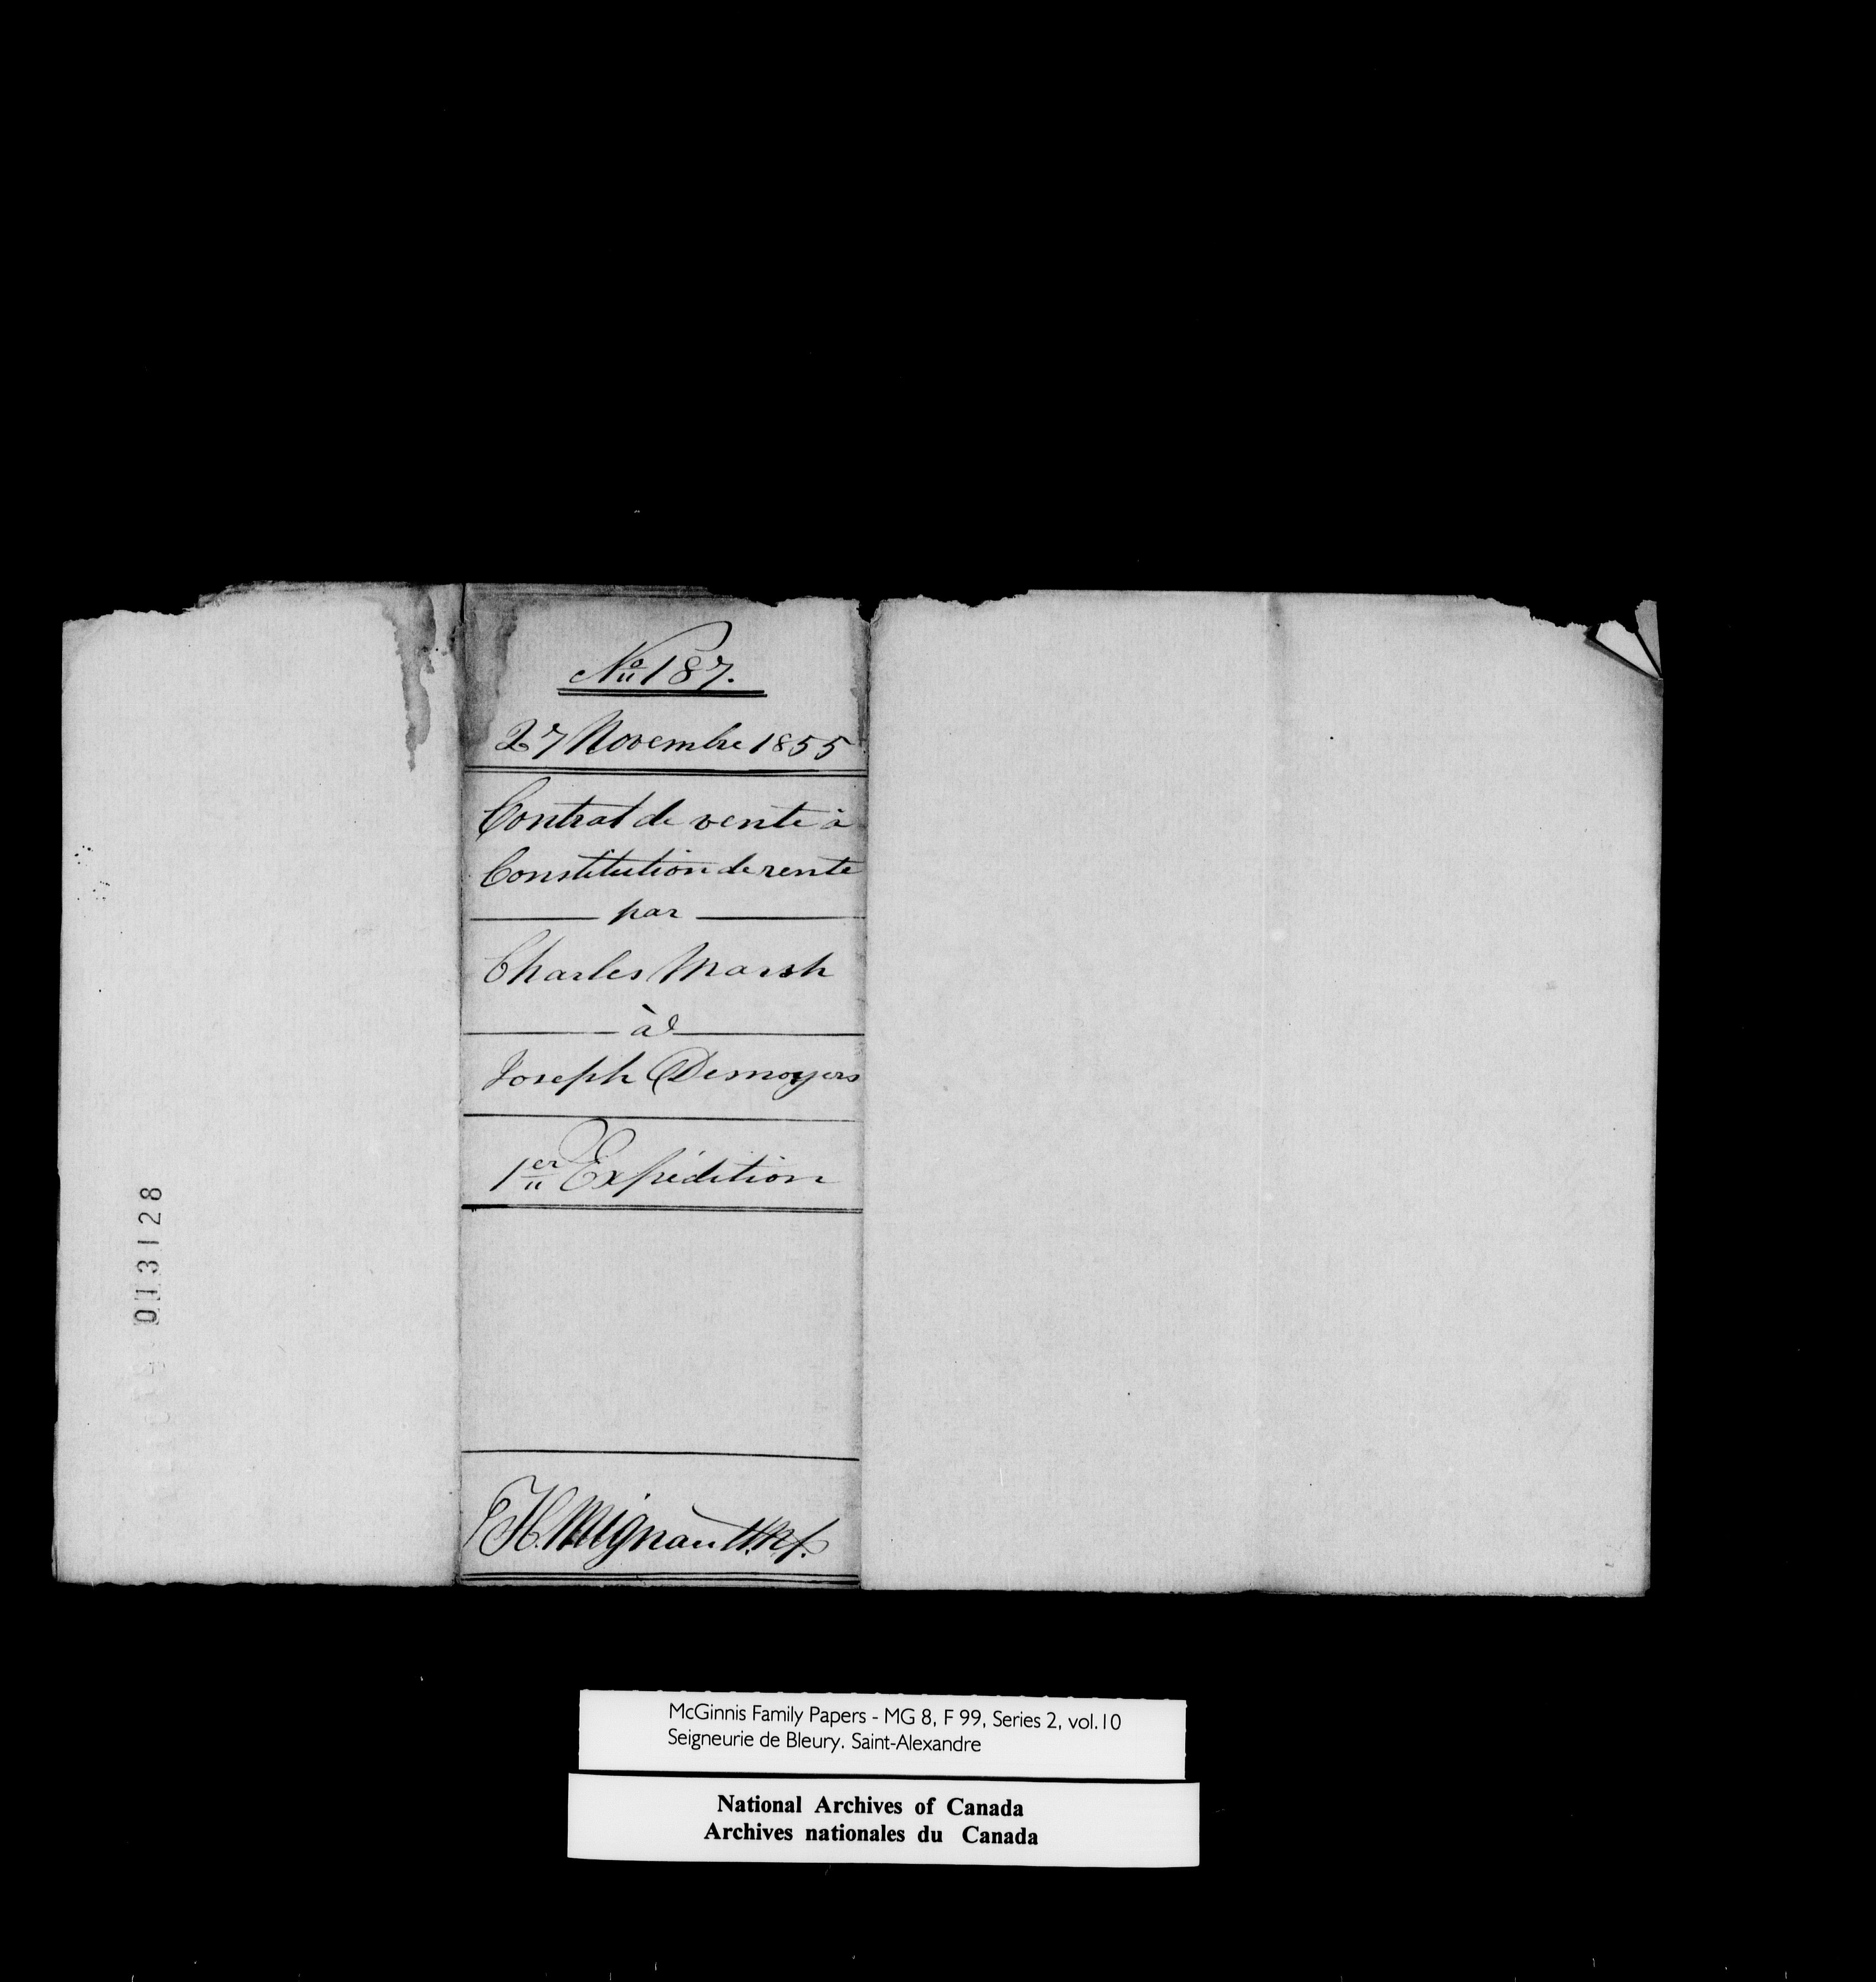 No 187.
27 Novembre 1855
Contrat de vente à
Constitution de rente
par
Charles Marsh
à
Joseph Desnoyers
1er Expédition
H. Mignault N.P.
013128
McGinnis Family Papers - MG 8, F 99, Series 2, vol.10
Seigneurie de Bleury. Saint-Alexandre
National Archives of Canada
Archives nationales du Canada